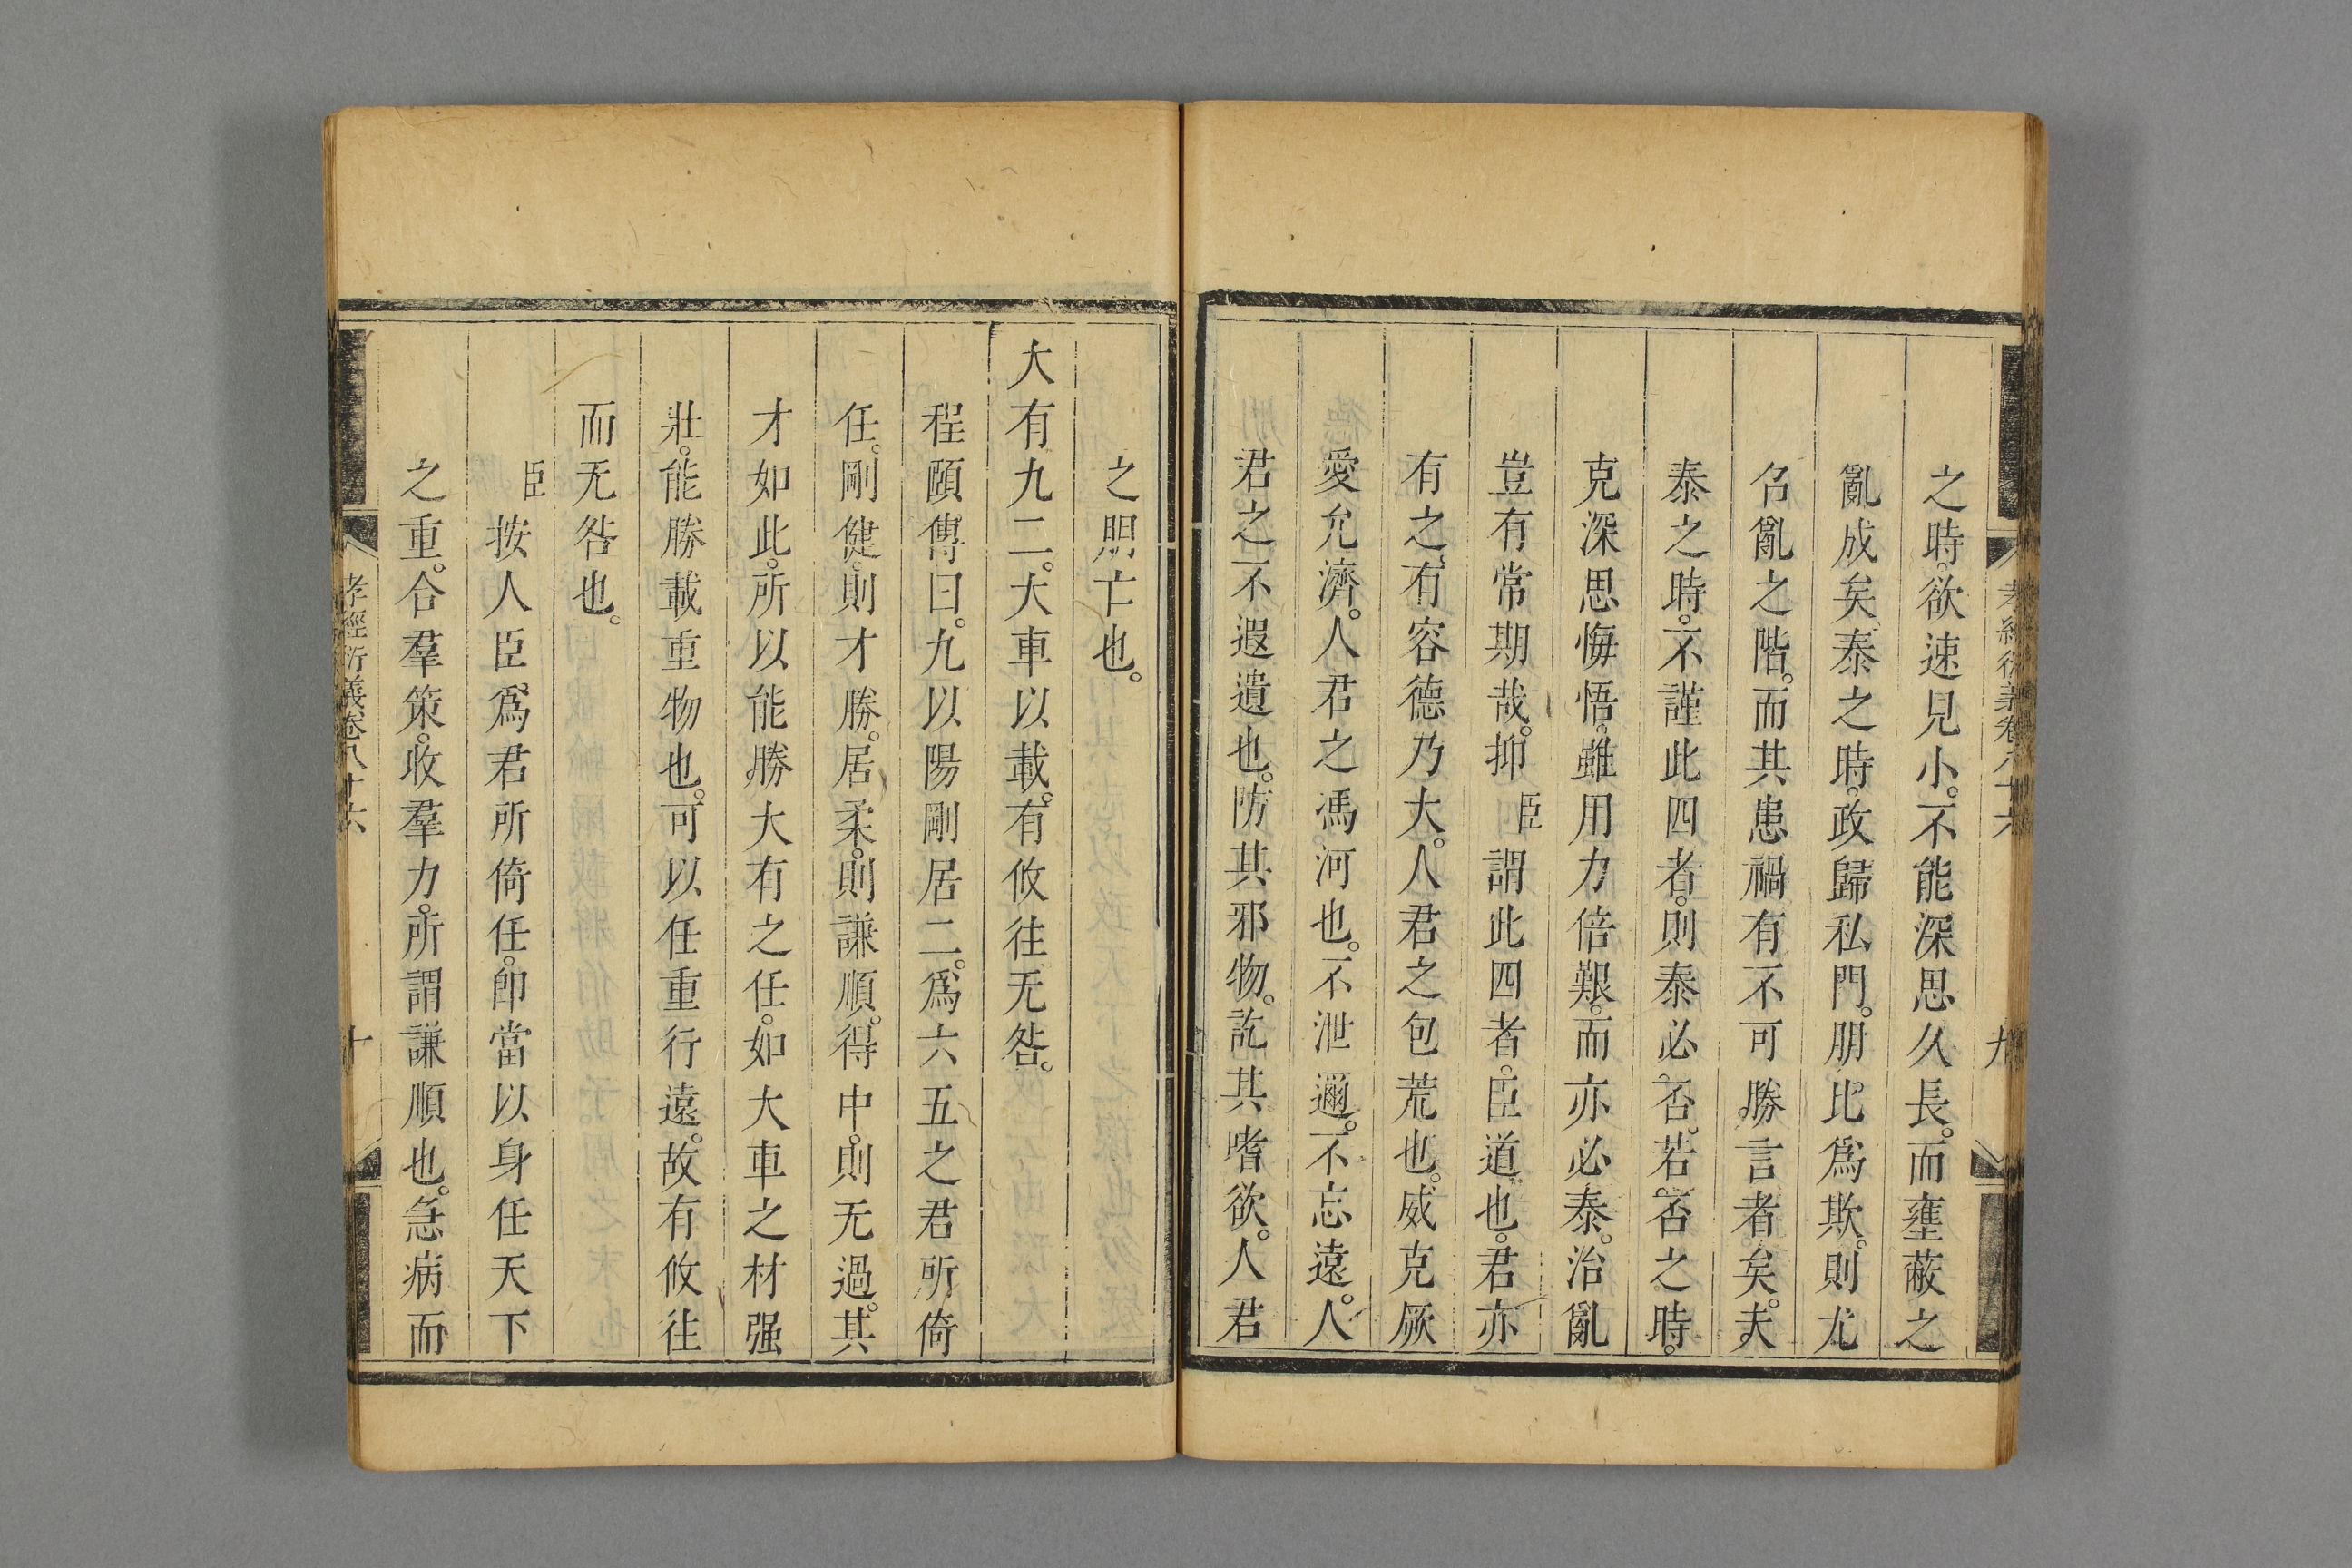 之時。欲速見小。不能深思久長。而壅蔽之
亂成矣。泰之時。政歸私門。朋比爲欺。則尤
召亂之階。而其患禍有不可勝言者矣。夫
泰之時。不謹此四者。則泰必否。若否之時。
克深思悔悟。雖用力倍艱。而亦必泰。治亂
豈有常期哉。抑臣謂此四者。臣道也。君亦
有之。有容德乃大。人君之包荒也。威克厥
愛允濟。人君之馮河也。不泄邇。不忘遠。人
君之不遐遺也。防其邪物。訖其嗜欲。人君
孝經衍義卷八十六
九
之朋亡也。
大有九二。大車以載。有攸往无咎。
程頤傳曰。九以陽剛居二。爲六五之君所倚
任。剛健。則才勝。居柔。則謙順。得中。則无過。其
才如此。所以能勝大有之任。如大車之材强
壯。能勝載重物也。可以任重行遠。故有攸往
而无咎也。
臣按人臣爲君所倚任。卽當以身任天下
之重。合羣策。收羣力。所謂謙順也。急病而
孝經衍義卷八十六
十